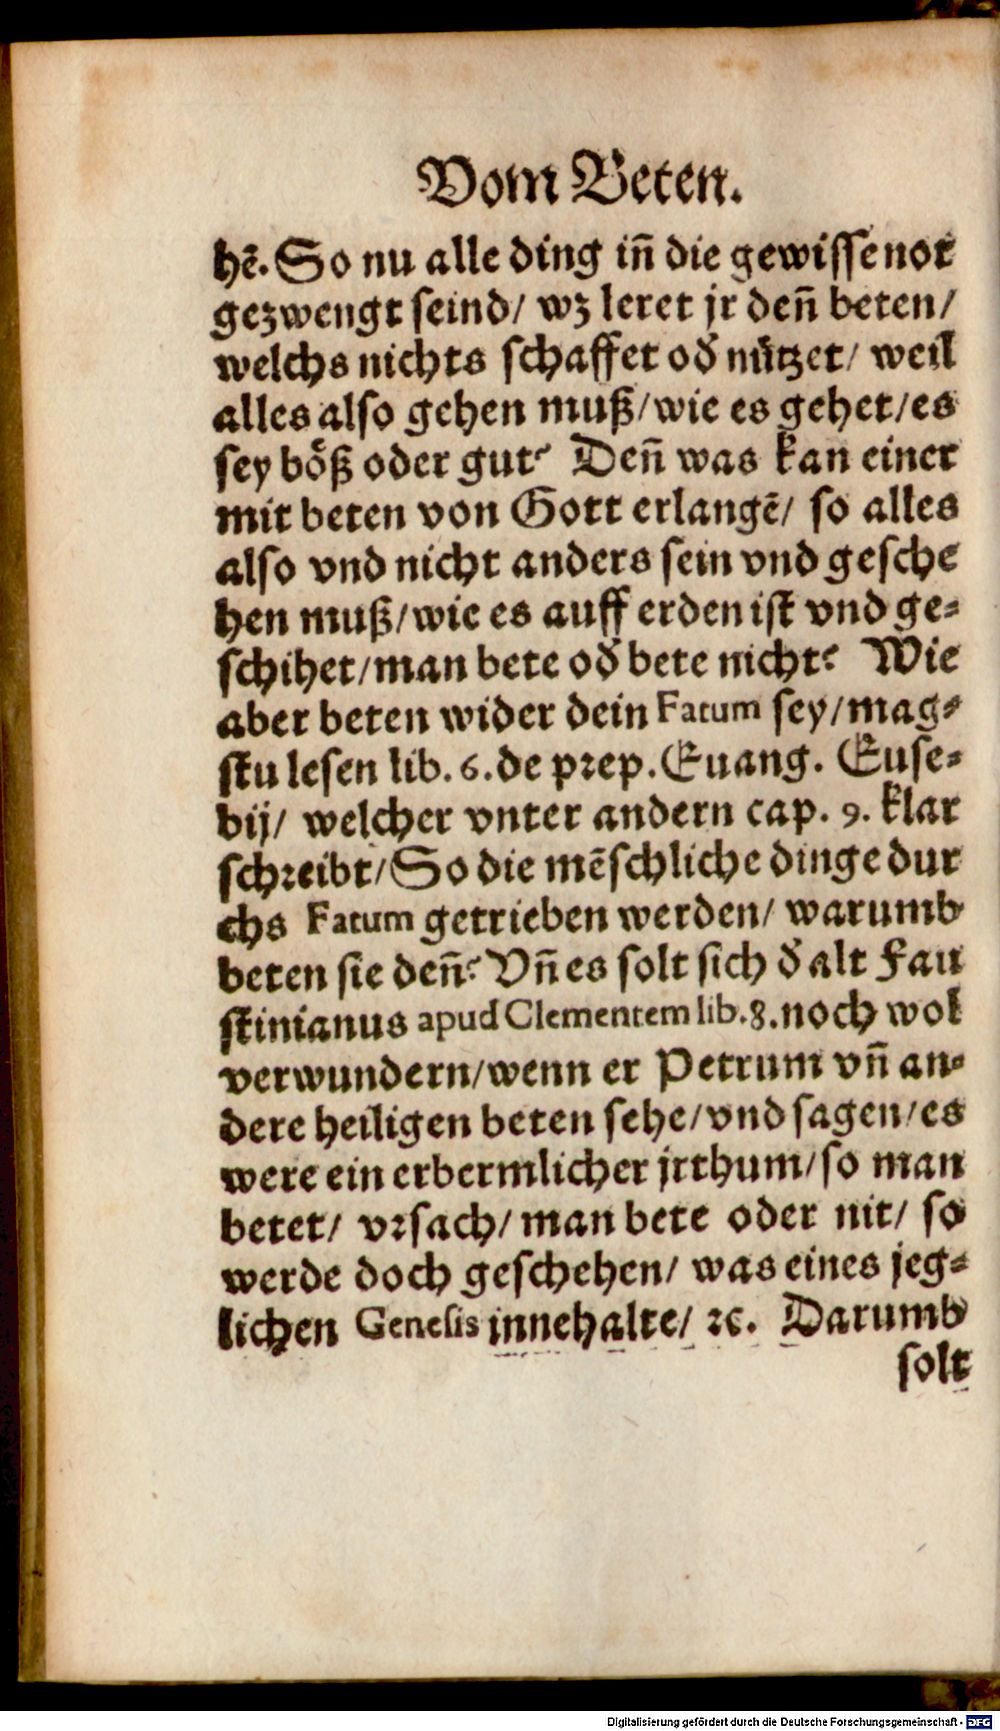 Vom Beten.
hẽ. So nu alle ding iñ die gewisse not
gezwengt seind/ wz leret jr deñ beten/
welchs nichts schaffet oď nützet/ weil
alles also gehen muß/wie es gehet/es
sey böß oder gut? Deñ was kan einer
mit beten von Gott erlangẽ/ so alles
also vnd nicht anders sein vnd gesche
hen muß/wie es auff erden ist vnd ge-
schihet/man bete oď bete nicht? Wie
aber beten wider dein Fatum sey/mag-
stu lesen lib. 6. de prep. Euang. Euse-
bij/ welcher vnter andern cap. 9. klar
schreibt/So die mẽschliche dinge dur
chs Fatum getrieben werden/ warumb
beten sie deñ? Vñ es solt sich ď alt Fau
stinianus apud Clementem lib.8.noch wol
verwundern/wenn er Petrum vñ an-
dere heiligen beten sehe/vnd sagen/es
were ein erbermlicher jrthum/so man
betet/ vrsach/ man bete oder nit/ so
werde doch geschehen/ was eines jeg-
lichen Genesis innehalte/ ꝛc. Darumb
solt
Digitalisierung gefördert durch die Deutsche Forschungsgemeinschaft - DFG